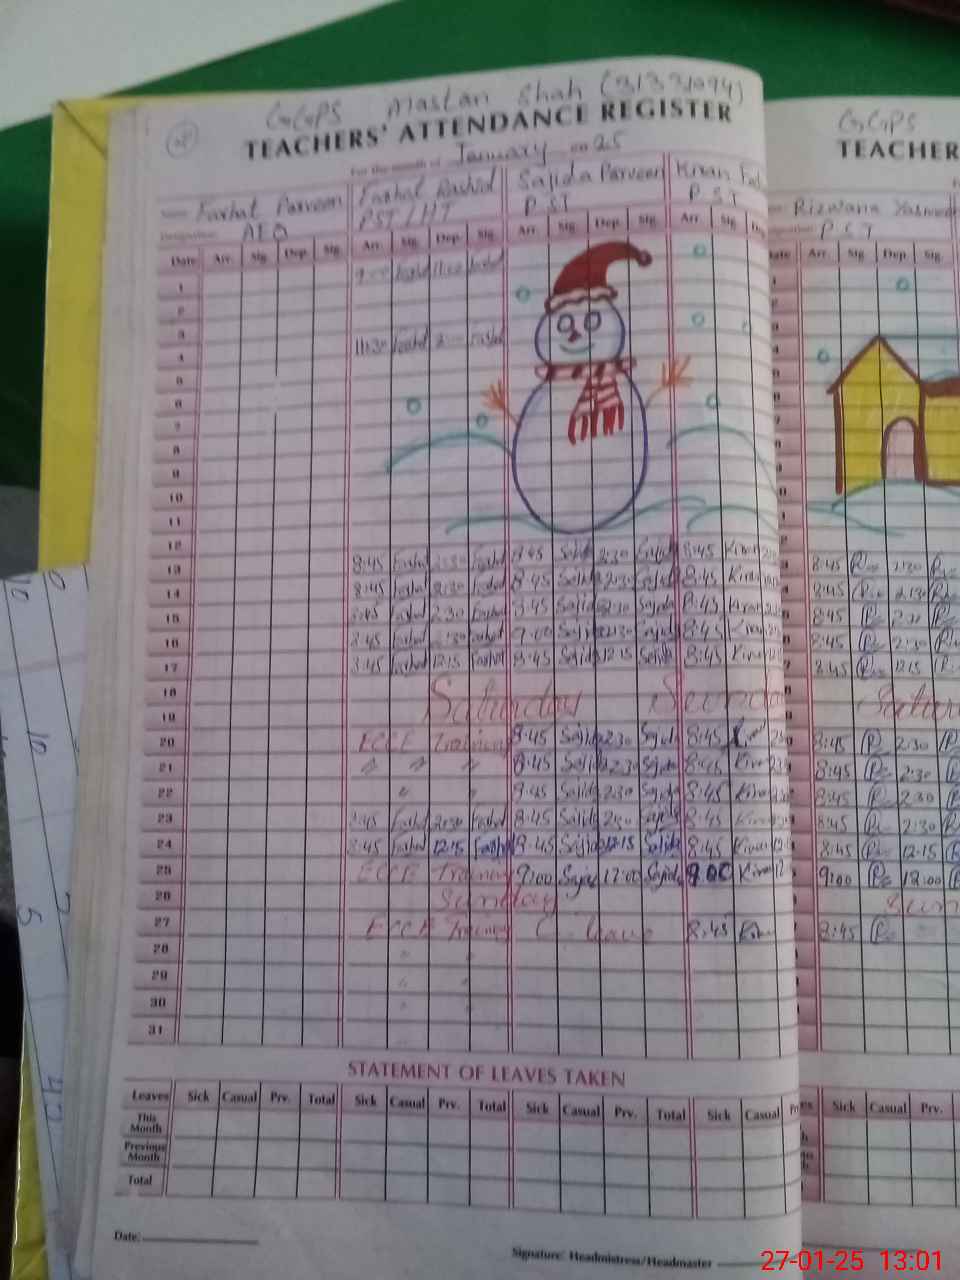 GGPS Mastan Shah (31331094)
TEACHERS' ATTENDANCE REGISTER
For the month of January 2025
Name Farhat Parveen Farhat Rashid Sajida Parveen Kiran
Designation AEO PST/HT PST PST
Date Arr. Sig. Dep. Sig. Arr. Sig. Dep. Sig. Arr. Sig. Dep. Sig. Arr. Sig.
1 9:00 Farhat 11:00 Farhat
2
3
4 11:30 Farhat 2:00 Farhat
5
6
7
8
9
10
11
12
13 8:45 Farhat 2:30 Farhat 8:45 Sajida 2:30 Sajida 8:45 Kiran
14 8:45 Farhat 2:30 Farhat 8:45 Sajida 2:30 Sajida 8:45 Kiran
15 8:45 Farhat 2:30 Farhat 8:45 Sajida 2:30 Sajida 8:45 Kiran
16 8:45 Farhat 2:30 Farhat 9:00 Sajida 2:30 Sajida 8:45 Kiran
17 8:45 Farhat 12:15 Farhat 8:45 Sajida 12:15 Sajida 8:45 Kiran
18 Saturday Sunday
19
20 ECCE Training 8:45 Sajida 2:30 Sajida 8:45 Kiran
21 " " " 8:45 Sajida 2:30 Sajida 8:45 Kiran
22 " " 8:45 Sajida 2:30 Sajida 8:45 Kiran
23 8:45 Farhat 2:30 Farhat 8:45 Sajida 2:30 Sajida 8:45 Kiran
24 8:45 Farhat 12:15 Farhat 8:45 Sajida 12:15 Sajida 8:45 Kiran
25 ECCE Training 9:00 Sajida 12:00 Sajida 9:00 Kiran
26 Sunday
27 ECCE Training C. leave 8:45 Kiran
28 " "
29 " "
30 " "
31
STATEMENT OF LEAVES TAKEN
Leaves Sick Casual Prv. Total Sick Casual Prv. Total Sick Casual Prv. Total Sick Casual
This Month
Previous Month
Total
Date:
Signature: Headmistress/Headmaster
GGPS
TEACHER
Rizwana Yasmeen
PST
Arr. Sig. Dep. Sig.
8:45 2:30
8:45 2:30
8:45 2:30
8:45 2:30
8:45 12:15
8:45 2:30
8:45 2:30
8:45 2:30
8:45 2:30
8:45 12:15
9:00 12:00
8:45
Sick Casual Prv.
27-01-25 13:01